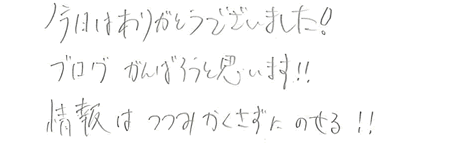 今日はありがとうございました!
ブログ がんばろうと思います!!
情報は つつみかくさずに のせる !!